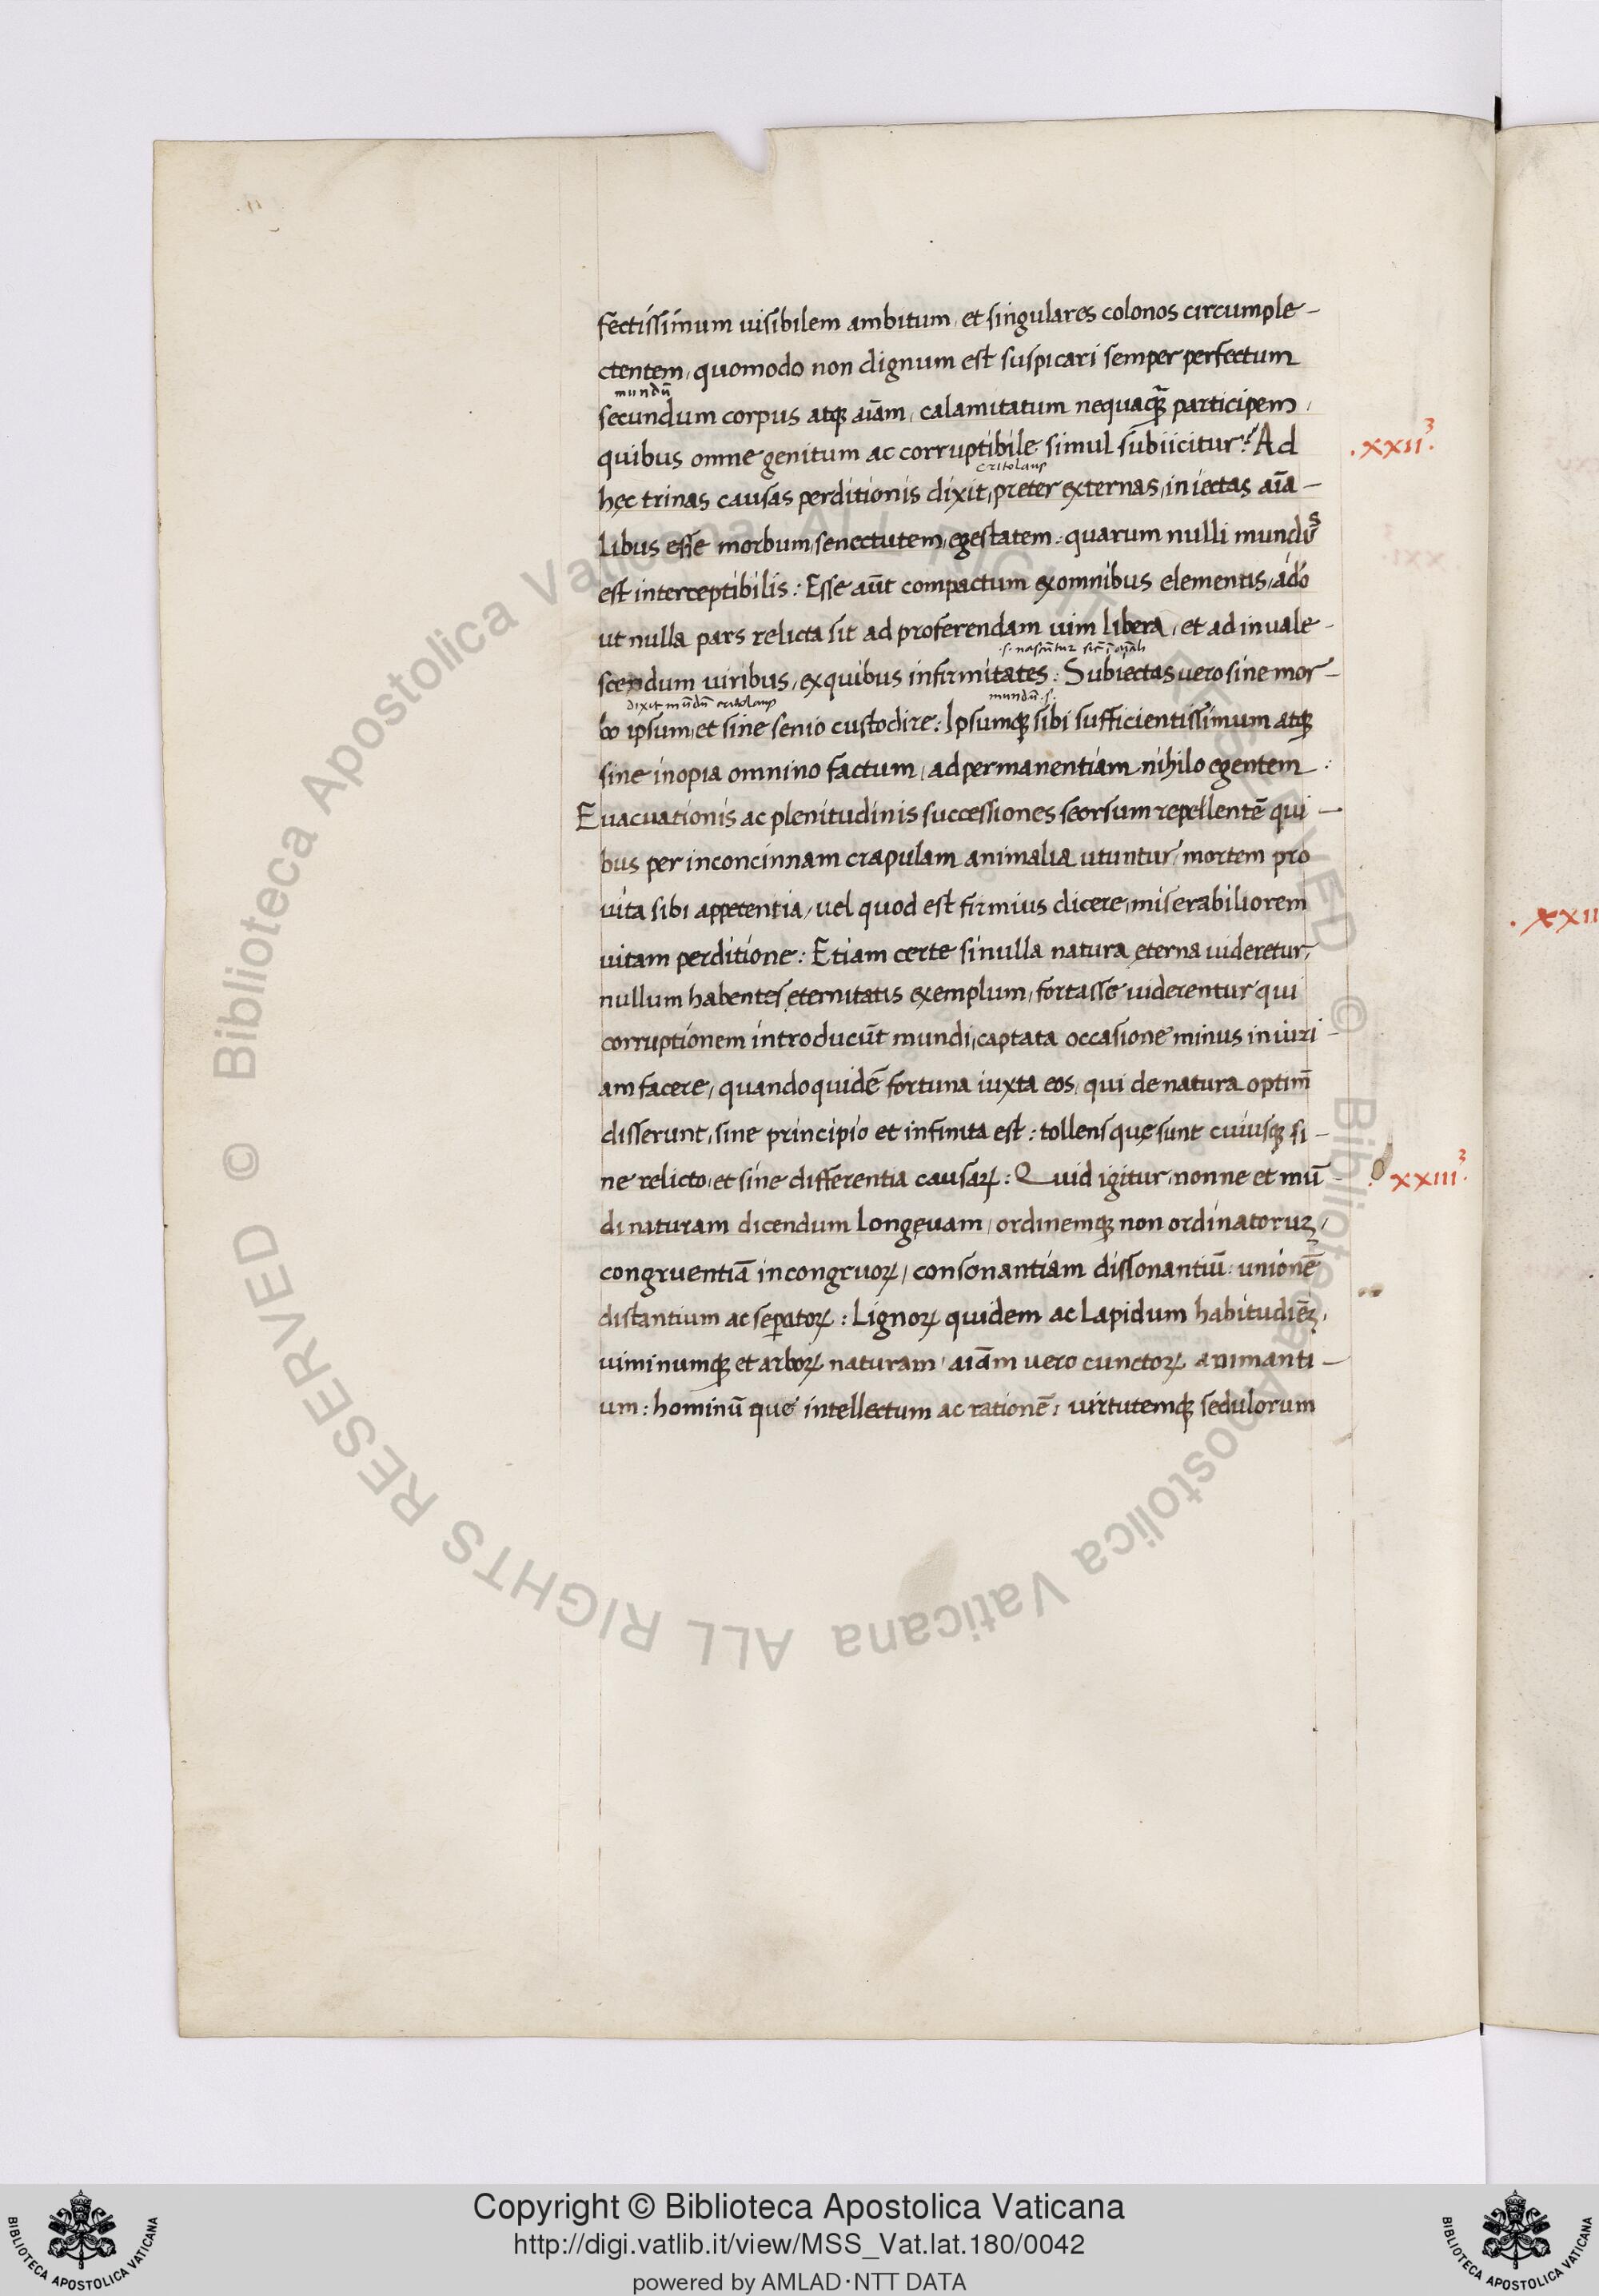 fectissimum uisibilem ambitum, et singulares colonos circumple-
ctentem, quomodo non dignum est suspicari semper perfectum
mundū
secundum corpus atqꝫ aīam, calamitatum nequaqꝫ̄ participem,
quibus omne genitum ac corruptibile simul subiicitur? Ad
.xxii³.
critolaus
hęc trinas causas perditionis dixit, preter externas, iniectas aīa-
libus esse morbum, senectutem, egestatem: quarum nulli mundus
est interceptibilis: Esse aūt compactum ex omnibus elementis, adó
ut nulla pars relicta sit ad proferendam uim libera, et ad inuale-
.s. nascūtur sic̄ ī aīali
scendum uiribus, ex quibus infirmitates: Subiectas uero sine mor-
dixit mūdū critolaus mundū .s.
bo ipsum, et sine senio custodire: Ipsumqꝫ sibi sufficientissimum atqꝫ
sine inopia omnino factum, ad permanentiam nihilo egentem:
Euacuationis ac plenitudinis successiones seorsum repellentē qui-
bus per inconcinnam crapulam animalia utuntur, mortem pro
uita sibi appetentia, uel quod est firmius dicere, miserabiliorem
uitam perditione: Etiam certe si nulla natura ęterna uideretur,
nullum habentes ęternitatis exemplum, fortasse uiderentur qui
corruptionem introducūt mundi, captata occasione minus iniuri-
am facere, quandoquidē fortuna iuxta eos, qui de natura optim̄
disserunt, sine principio et infinita est: tollens quę sunt cuiusqꝫ si-
ne relicto, et sine differentia causaꝝ: Quid igitur, nonne et mū-
.xxiii³.
di naturam dicendum longęuam, ordinemqꝫ non ordinatoruꝫ,
congruentiā incongruoꝝ, consonantiam dissonantiū: unionē
distantium ac sep̄atoꝝ: Lignoꝝ quidem ac Lapidum habitudiēꝫ,
uiminumqꝫ et arboꝝ naturam, aiām uero cunctoꝝ animanti-
um: hominū que intellectum ac rationē, uirtutemqꝫ sedulorum
.xxii
Biblioteca Apostolica Vaticana ALL RIGHTS RESERVED © Biblioteca Apostolica Vaticana ALL RIGHTS RESERVED ©
Copyright © Biblioteca Apostolica Vaticana
http://digi.vatlib.it/view/MSS_Vat.lat.180/0042
powered by AMLAD·NTT DATA
BIBLIOTECA APOSTOLICA VATICANA
BIBLIOTECA APOSTOLICA VATICANA